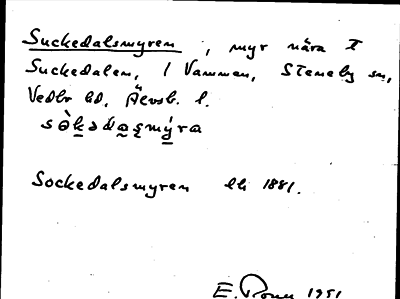 Suckedalsmyren, myr nära T
Suckedalen, i Vammen, Steneby sn,
Vedbo hd, Älvsb. l.
Sockedalsmyren Eli 1881.
E. 1951